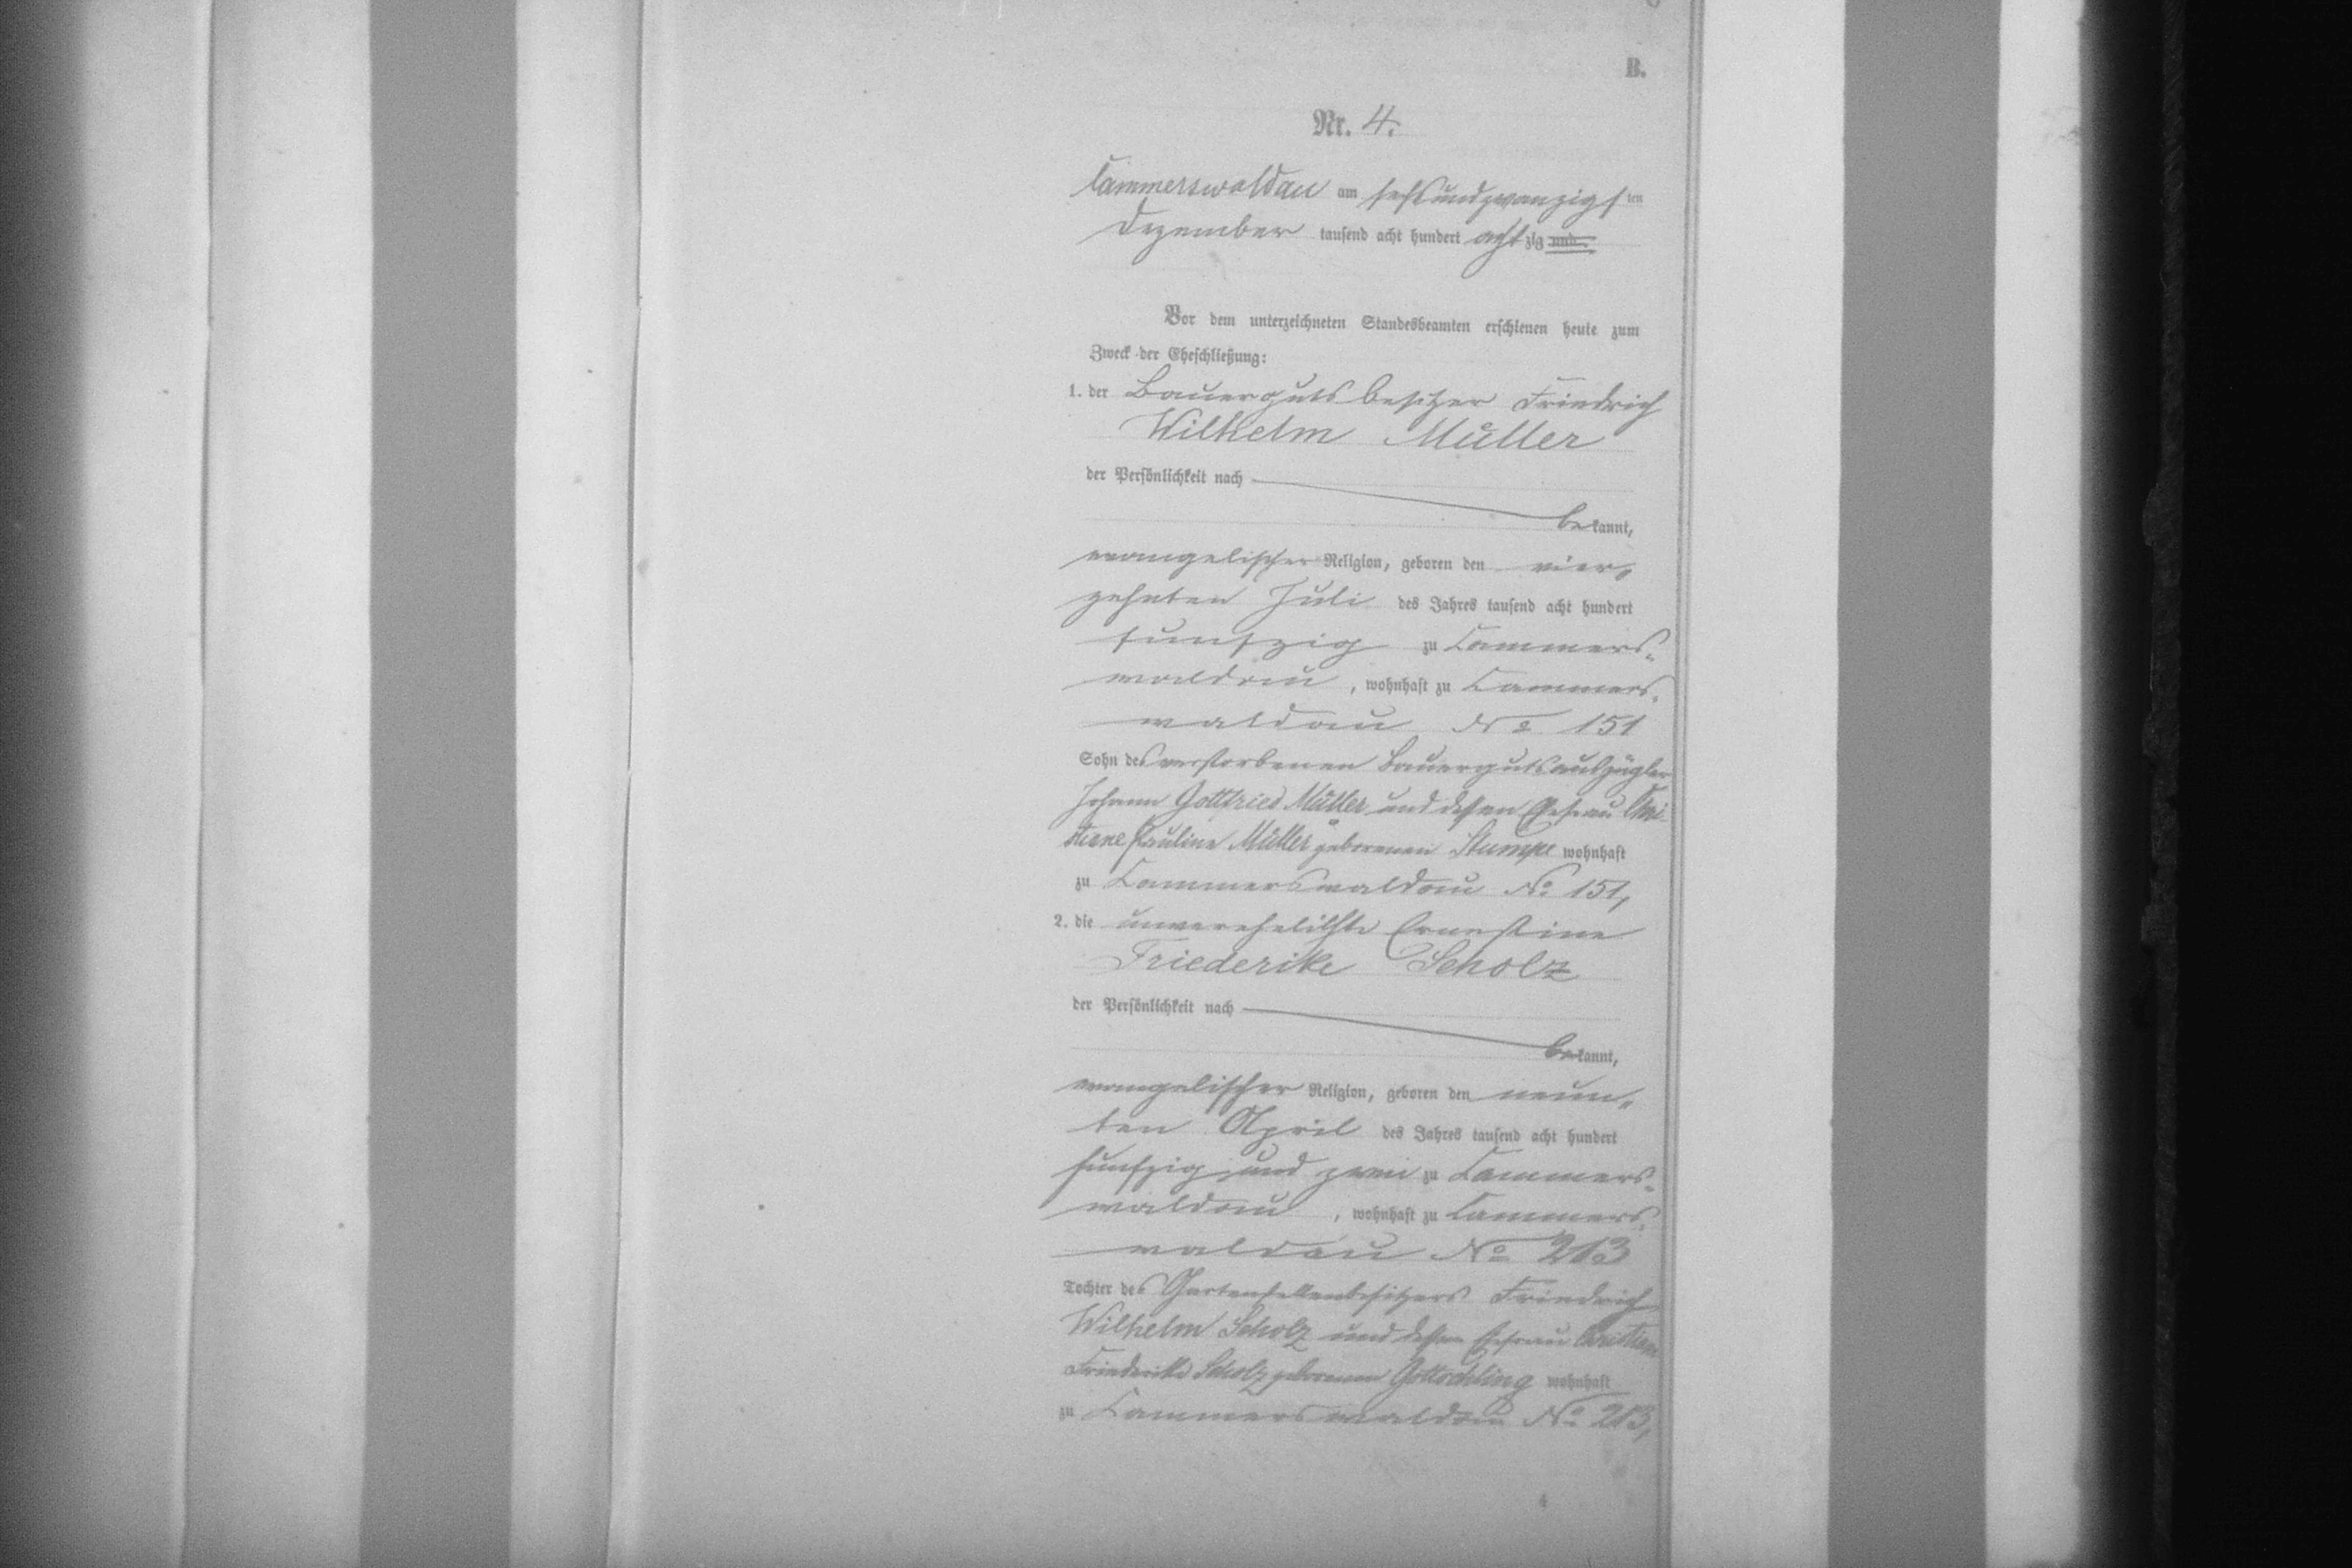 B.
Nr. 4.
Cammerswaldau am sechsundzwanzigsten
Dezember tausend acht hundert achtzig und
Vor dem unterzeichneten Standesbeamten erschienen heute zum
Zweck der Eheschließung:
1. der Bauergutsbesitzer Friedrich
Wilhelm Müller
der Persönlichkeit nach
bekannt,
evangelischer Religion, geboren den vier-
zehnten Juli des Jahres tausend acht hundert
funfzig zu Cammers-
waldau, wohnhaft zu Cammers-
waldau No 151
Sohn des verstorbenen Bauergutsauszügler
Johann Gottfried Müller und dessen Ehefrau Chri-
stiane Pauline Müller geborenen Stumpe wohnhaft
zu Cammerswaldau No 151,
2. die unverehelichte Ernestine
Friederike Scholz
der Persönlichkeit nach
bekannt,
evangelischer Religion, geboren den neun-
ten April des Jahres tausend acht hundert
funfzig und zwei zu Cammers-
waldau, wohnhaft zu Cammers-
waldau No 213
Tochter des Gartenstellenbesitzers Friedrich
Wilhelm Scholz und dessen Ehefrau Christiane
Friederike Scholz geborenen Gottschling wohnhaft
zu Cammerswaldau No 213,
4